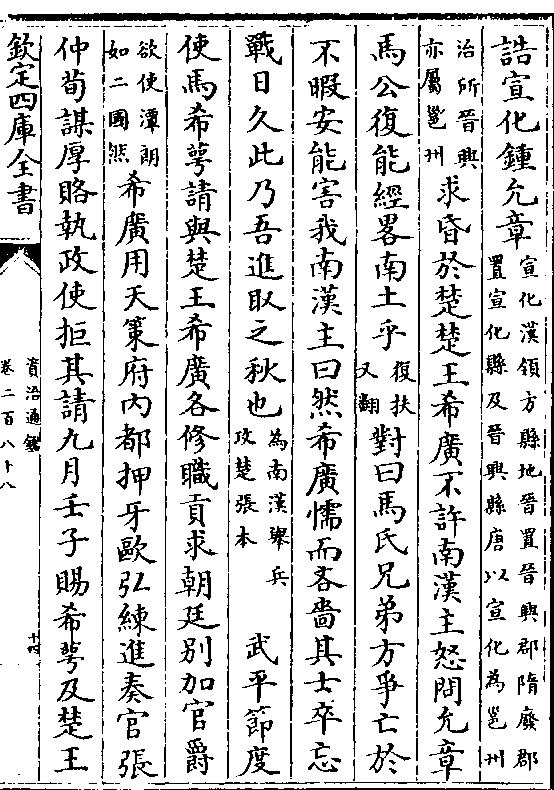 誥宣化鍾允章宣化漢領方縣地晉置晉興郡隋廢郡置宣化縣及晉興縣唐以宣化為邕州
治所晉興亦屬邕州求昏於楚楚王希廣不許南漢主怒問允章
馬公復能經畧南土乎復扶又翻對曰馬氏兄弟方爭亡於
不暇安能害我南漢主曰然希廣懦而吝嗇其士卒忘
戰日久此乃吾進取之秋也為南漢舉兵攻楚張本武平節度
使馬希萼請與楚王希廣各修職貢求朝廷別加官爵
欲使潭朗如二國然希廣用天策府內都押牙歐弘練進奏官張
仲荀謀厚賂執政使拒其請九月壬子賜希萼及楚王
欽定四庫全書
資治通鑑
卷二百八十八
十四